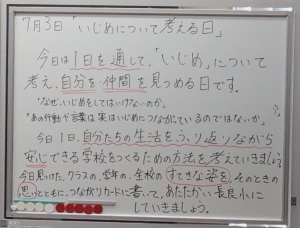 7月3日「いじめについて考える日」
今日は1日を通して、「いじめ」について
考え、自分を・仲間を見つめる日です。
「なぜ、いじめをしてはいけないのか」
「あの行動や言葉は実はいじめにつながっているのではないか」
今日1日、自分たちの生活をふり返りながら
安心できる学校をつくるための方法を考えていきましょう。
今日見つけた、クラスの、学年の、全校のすてきな姿を、そのときの
思いとともに、つながりカードに書いて、あたたかい長良小に
していきましょう。